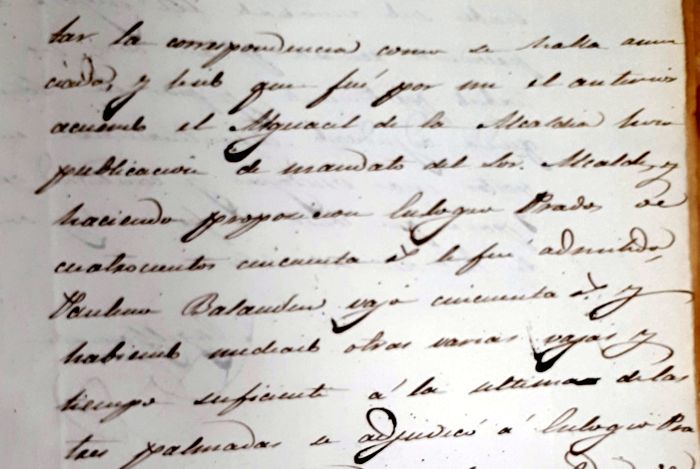 tar la correspondencia como se halla anun
ciado, y leido que fué por mi el anterior
acuerdo el Alguacil de la Alcaldia hizo
publicacion de mandato del Sor. Alcalde, y
haciendo proposicion Eulogio Prados de
cuatrocientos cincuenta r.s le fué admitida,
Balandin vajo cincuenta r.s y
habiendo mediado otras varias vajas y
tiempo suficiente á la ultima de las
tres palmadas se adjudicó á Eulogio Pra